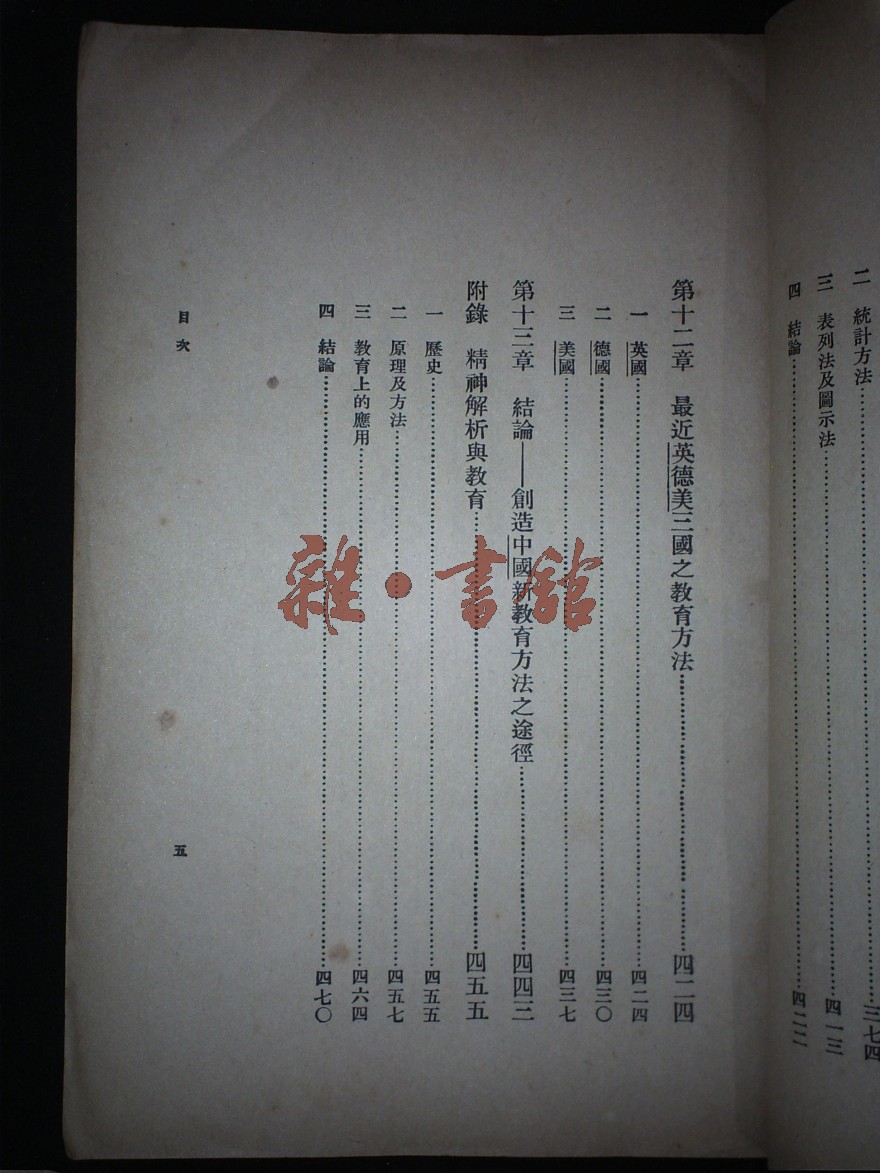 二　統計方法……三七四
三　表列法及圖示法……四一三
四　結論……四二二
第十二章　最近英德美三國之教育方法……四二四
一　英國……四二四
二　德國……四三〇
三　美國……四三七
第十三章　結論——創造中國新教育方法之途徑……四四三
附錄　精神解析與教育……四五五
一　歷史……四五五
二　原理及方法……四五七
三　教育上的應用……四六四
四　結論……四七〇
目次　五
雜·書館